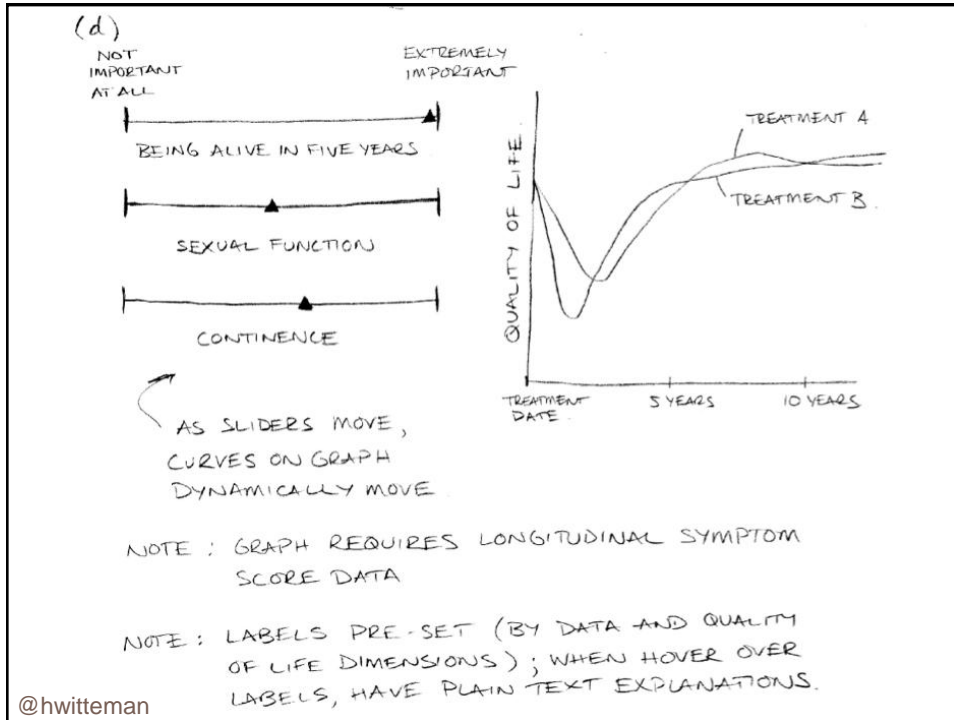 (d)
NOT
IMPORTANT
AT ALL
EXTREMELY
IMPORTANT
BEING ALIVE IN FIVE YEARS
SEXUAL FUNCTION
CONTINENCE
AS SLIDERS MOVE,
CURVES ON GRAPH
DYNAMICALLY MOVE
QUALITY OF LIFE
TREATMENT A
TREATMENT B.
TREATMENT
DATE.
5 YEARS
10 YEARS
NOTE : GRAPH REQUIRES LONGITUDINAL SYMPTOM
SCORE DATA
NOTE : LABELS PRE-SET (BY DATA AND QUALITY
OF LIFE DIMENSIONS) ; WHEN HOVER OVER
LABELS, HAVE PLAIN TEXT EXPLANATIONS.
@hwitteman